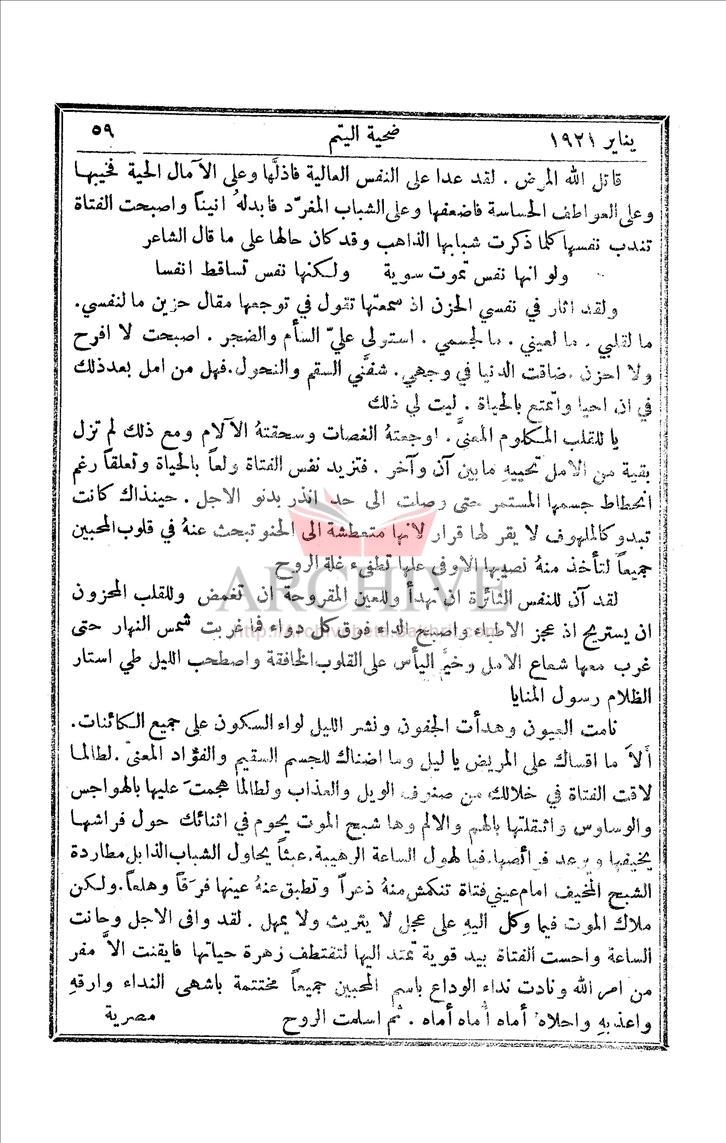 يناير ١٩٢١ ضحية اليتم ٥٩
قاتل الله المرض . لقد عدا على النفس العالية فاذلَّها وعلى الآمال الحية فخيبها
وعلى العواطف الحساسة فاضعفها وعلى الشباب المغرّد فابدلهُ انيناً واصبحت الفتاة
تندب نفسها كلما ذكرت شبابها الذاهب وقد كان حالها على ما قال الشاعر
ولو انها نفس تموت سوية ولكنها نفس تساقط انفسا
ولقد اثار في نفسي الحزن اذ سمعتها تقول في توجعها مقال حزين ما لنفسي.
ما لقلبي . ما لعيني . ما لجسمي . استولى عليّ السأم والضجر . اصبحت لا افرح
ولا احزن . ضاقت الدنيا في وجهي . شفَّني السقم والنحول . فهل من امل بعد ذلك
في ان احيا واتمتع بالحياة . ليت لي ذلك
يا للقلب المكلوم المعنَّى . اوجعتهُ الغصات وسحقتهُ الآلام ومع ذلك لم تزل
بقية من الامل تحييهِ ما بين آن وآخر . فتزيد نفس الفتاة ولعاً بالحياة وتعلقاً رغم
انحطاط جسمها المستمر حتى وصلت الى حد انذر بدنو الاجل . حينذاك كانت
تبدو كالملهوف لا يقر لها قرار لانها متعطشة الى الحنو تبحث عنهُ في قلوب المحبين
جميعاً لتأخذ منهُ نصيبها الاوفى علها تطفىء غلة الروح
ARCHIVE
لقد آن للنفس الثائرة ان تهدأ وللعين المقروحة ان تغمض وللقلب المحزون
ان يستريح اذ عجز الاطباء واصبح الداء فوق كل دواء فما غربت شمس النهار حتى
غرب معها شعاع الامل وخيَّم اليأس على القلوب الخافقة واصطحب الليل طي استار
الظلام رسول المنايا
نامت العيون وهدأت الجفون ونشر الليل لواء السكون على جميع الكائنات.
ألاَ ما اقساك على المريض يا ليل وما اضناك للجسم السقيم والفؤاد المعنىّ . لطالما
لاقت الفتاة في خلالك من صنوف الويل والعذاب ولطالما هجمتَ عليها بالهواجس
والوساوس واثقلتها بالهم والالم وها شبح الموت يحوم في اثنائك حول فراشها
يخيفها ويرعد فرائصها. فيا لهول الساعة الرهيبة. عبثاً يحاول الشباب الذابل مطاردة
الشبح المخيف امام عيني فتاة تنكمش منهُ ذعراً وتطبق عنهُ عينها فرَقاً وهلعاً. ولكن
ملاك الموت فيما وكل اليهِ على عجل لا يتريث ولا يمهل . لقد وافى الاجل وحانت
الساعة واحست الفتاة بيد قوية تمتد اليها لتقتطف زهرة حياتها فايقنت الاَّ مفر
من امر الله ونادت نداء الوداع باسم المحبين جميعاً مختتمة باشهى النداء وارقهِ
واعذبهِ واحلاهُ أماه أماه أماه . ثم اسلمت الروح مصرية